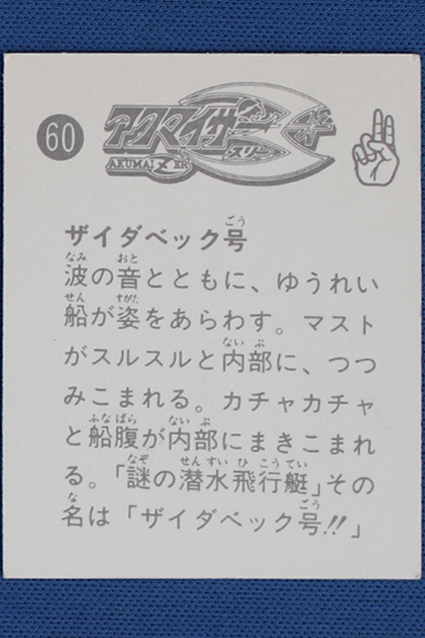 60
アクマイザー
スリー
AKUMAIZER
ザイダベック号
波の音とともに、ゆうれい
船が姿をあらわす。マスト
がスルスルと内部に、つつ
みこまれる。カチャカチャ
と船腹が内部にまきこまれ
る。「謎の潜水飛行艇」その
名は「ザイダベック号!!」